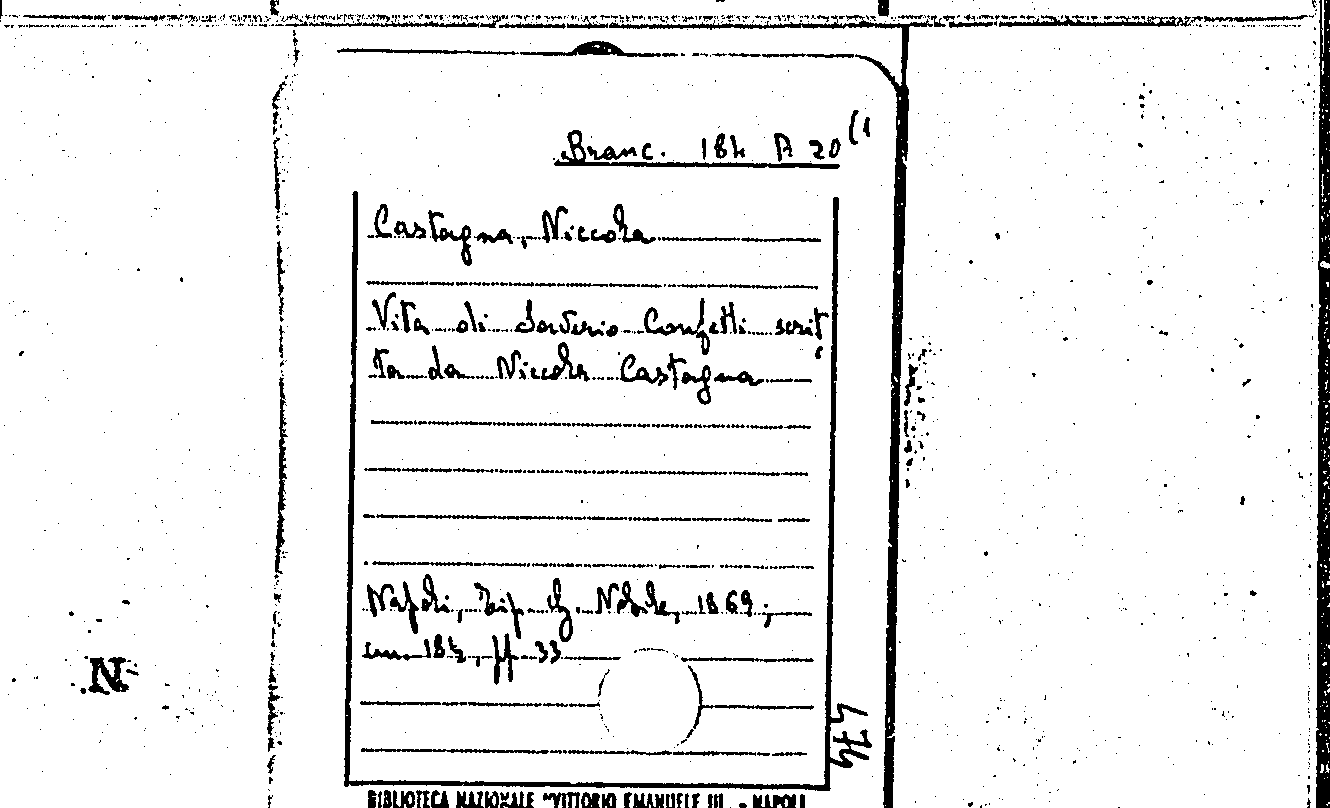 Branc. 184 A 20 (1
Castagna, Niccola
Vita di Saverio Confetti scrit
ta da Niccola Castagna
Napoli, Tip. G. Nobile, 1869;
in. 18½, pp 33
474
N
BIBLIOTECA NAZIONALE "VITTORIO EMANUELE III" - NAPOLI